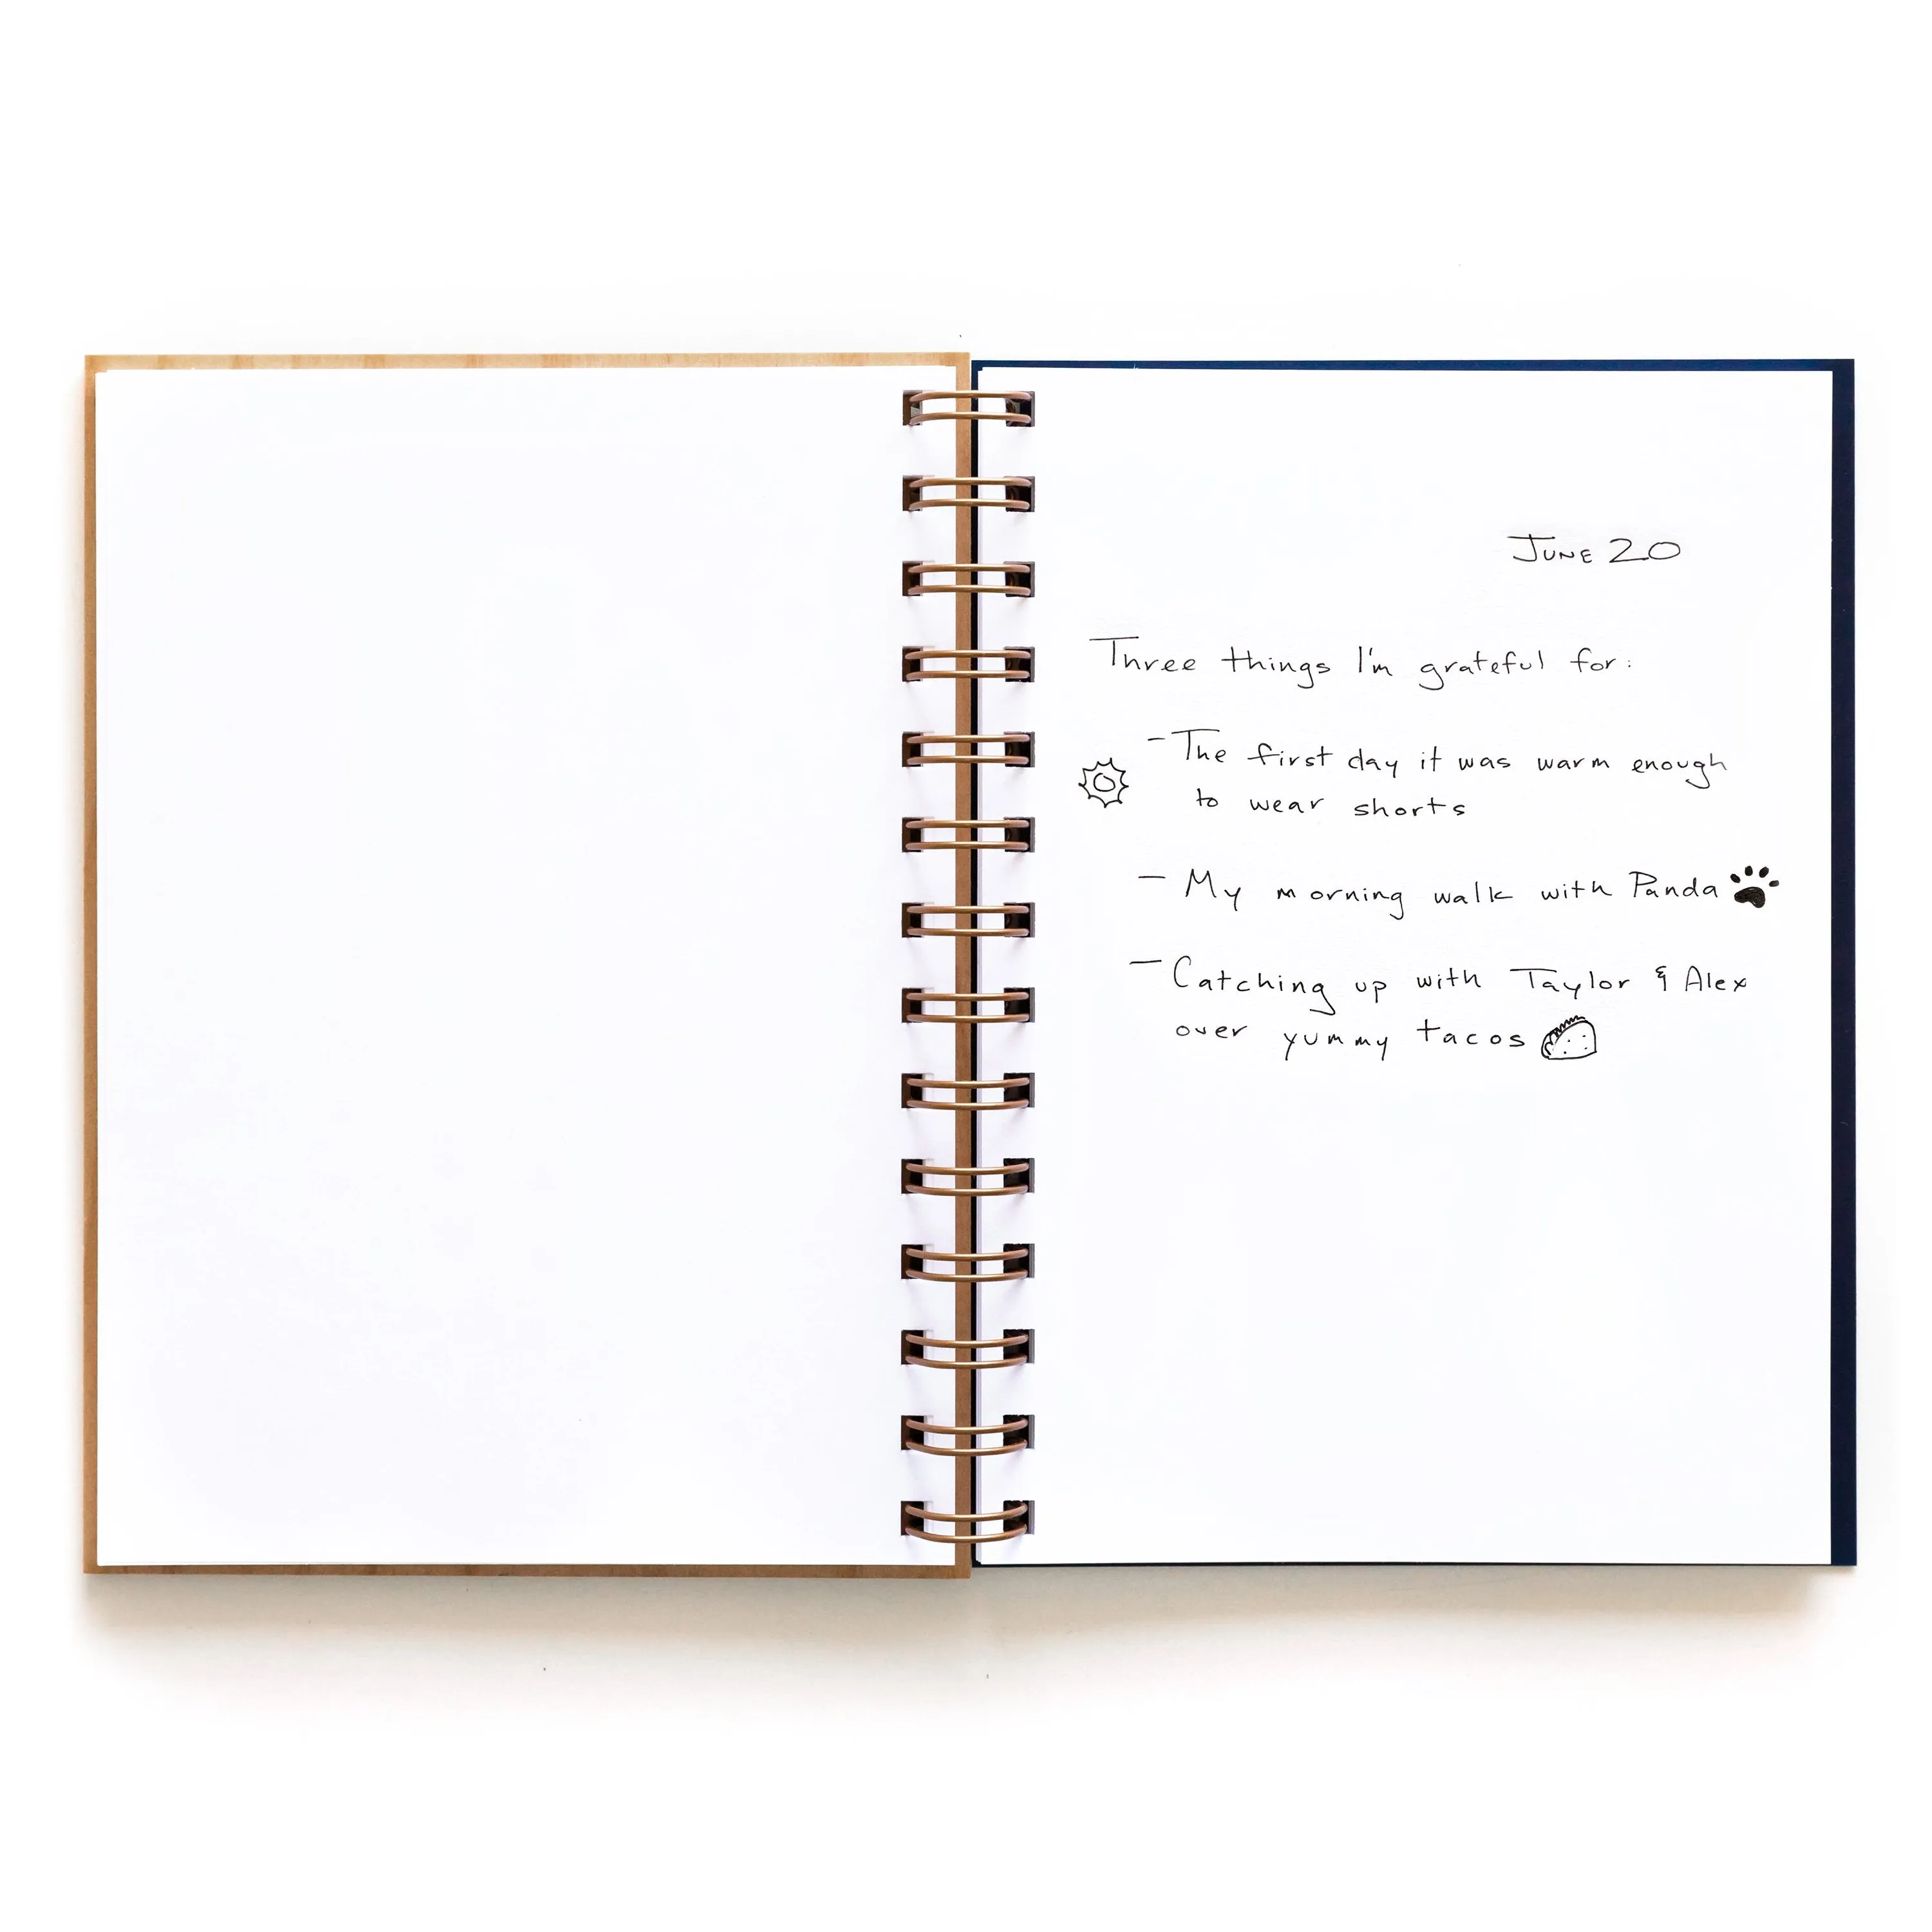 JUNE 20
Three things I'm grateful for:
- The first day it was warm enough
to wear shorts
- My morning walk with Panda
- Catching up with Taylor & Alex
over yummy tacos